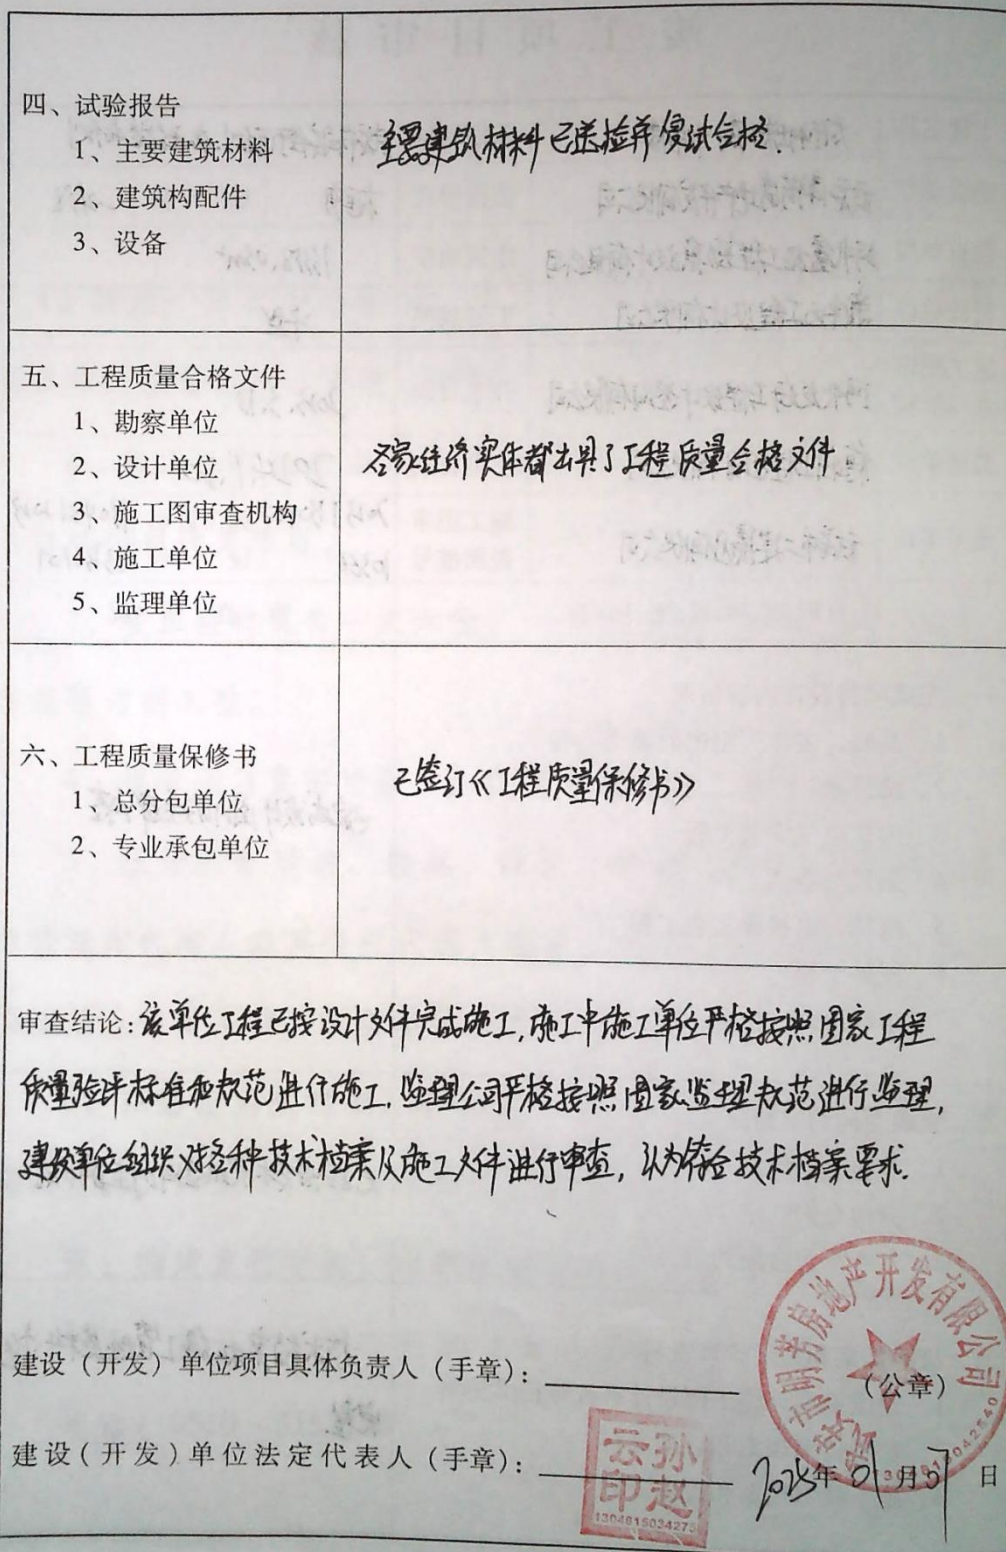 四、试验报告
1、主要建筑材料
2、建筑构配件
3、设备
主要建筑材料已送检并复试合格.
五、工程质量合格文件
1、勘察单位
2、设计单位
3、施工图审查机构
4、施工单位
5、监理单位
各家经济实体都出具了工程质量合格文件.
六、工程质量保修书
1、总分包单位
2、专业承包单位
已签订《工程质量保修书》
审查结论:该单位工程已按设计文件完成施工,施工中施工单位严格按照国家工程
质量验评标准和规范进行施工,监理公司严格按照国家监理规范进行监理,
建设单位组织对各种技术档案及施工文件进行审查,认为符合技术档案要求.
建设（开发）单位项目具体负责人（手章）:
（公章）
武安市明芳房地产开发有限公司
建设(开发)单位法定代表人(手章):
孙赵云印
1304815034273
2025年01月07日